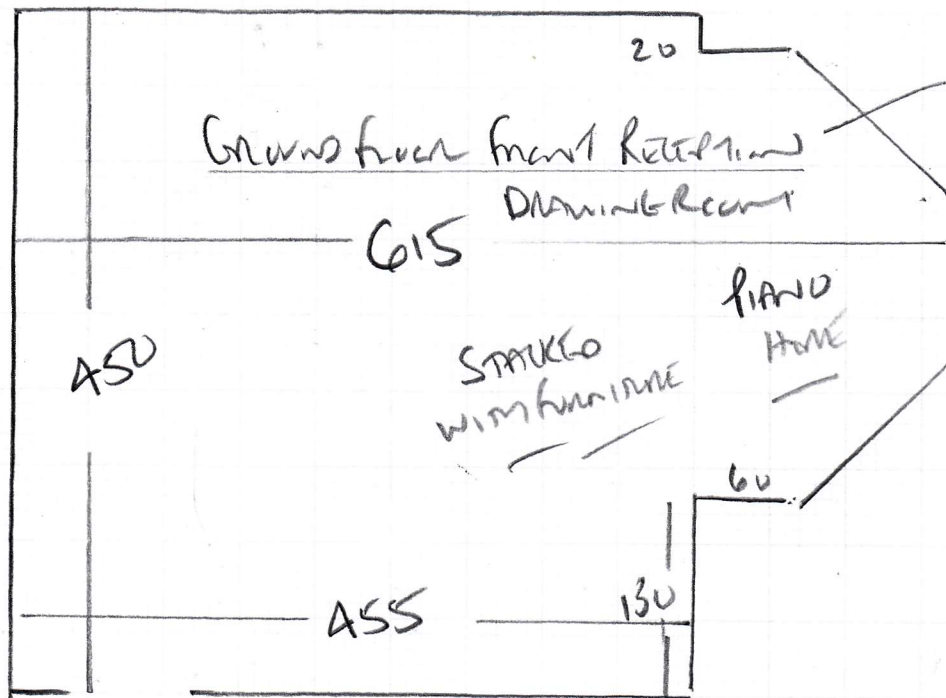 20
GROUND FLOOR FRONT RECEPTION
DRAWING ROOM
615
PIANO
HOME
450
STACKED
WITH FURNITURE
60
130
455